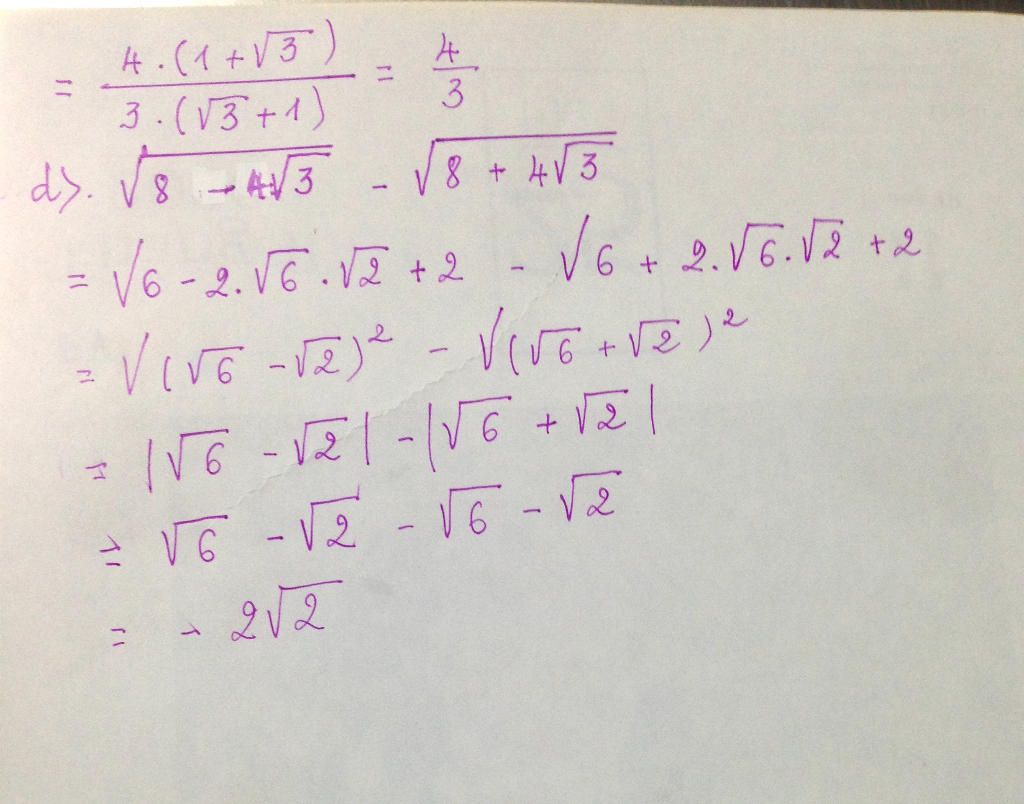 = 4.(1+√3) / 3.(√3+1) = 4/3
d>. √(8 - 4√3) - √(8 + 4√3)
= √6 - 2.√6.√2 + 2 - √6 + 2.√6.√2 + 2
= √(√6 - √2)² - √(√6 + √2)²
= |√6 - √2| - |√6 + √2|
= √6 - √2 - √6 - √2
= - 2√2